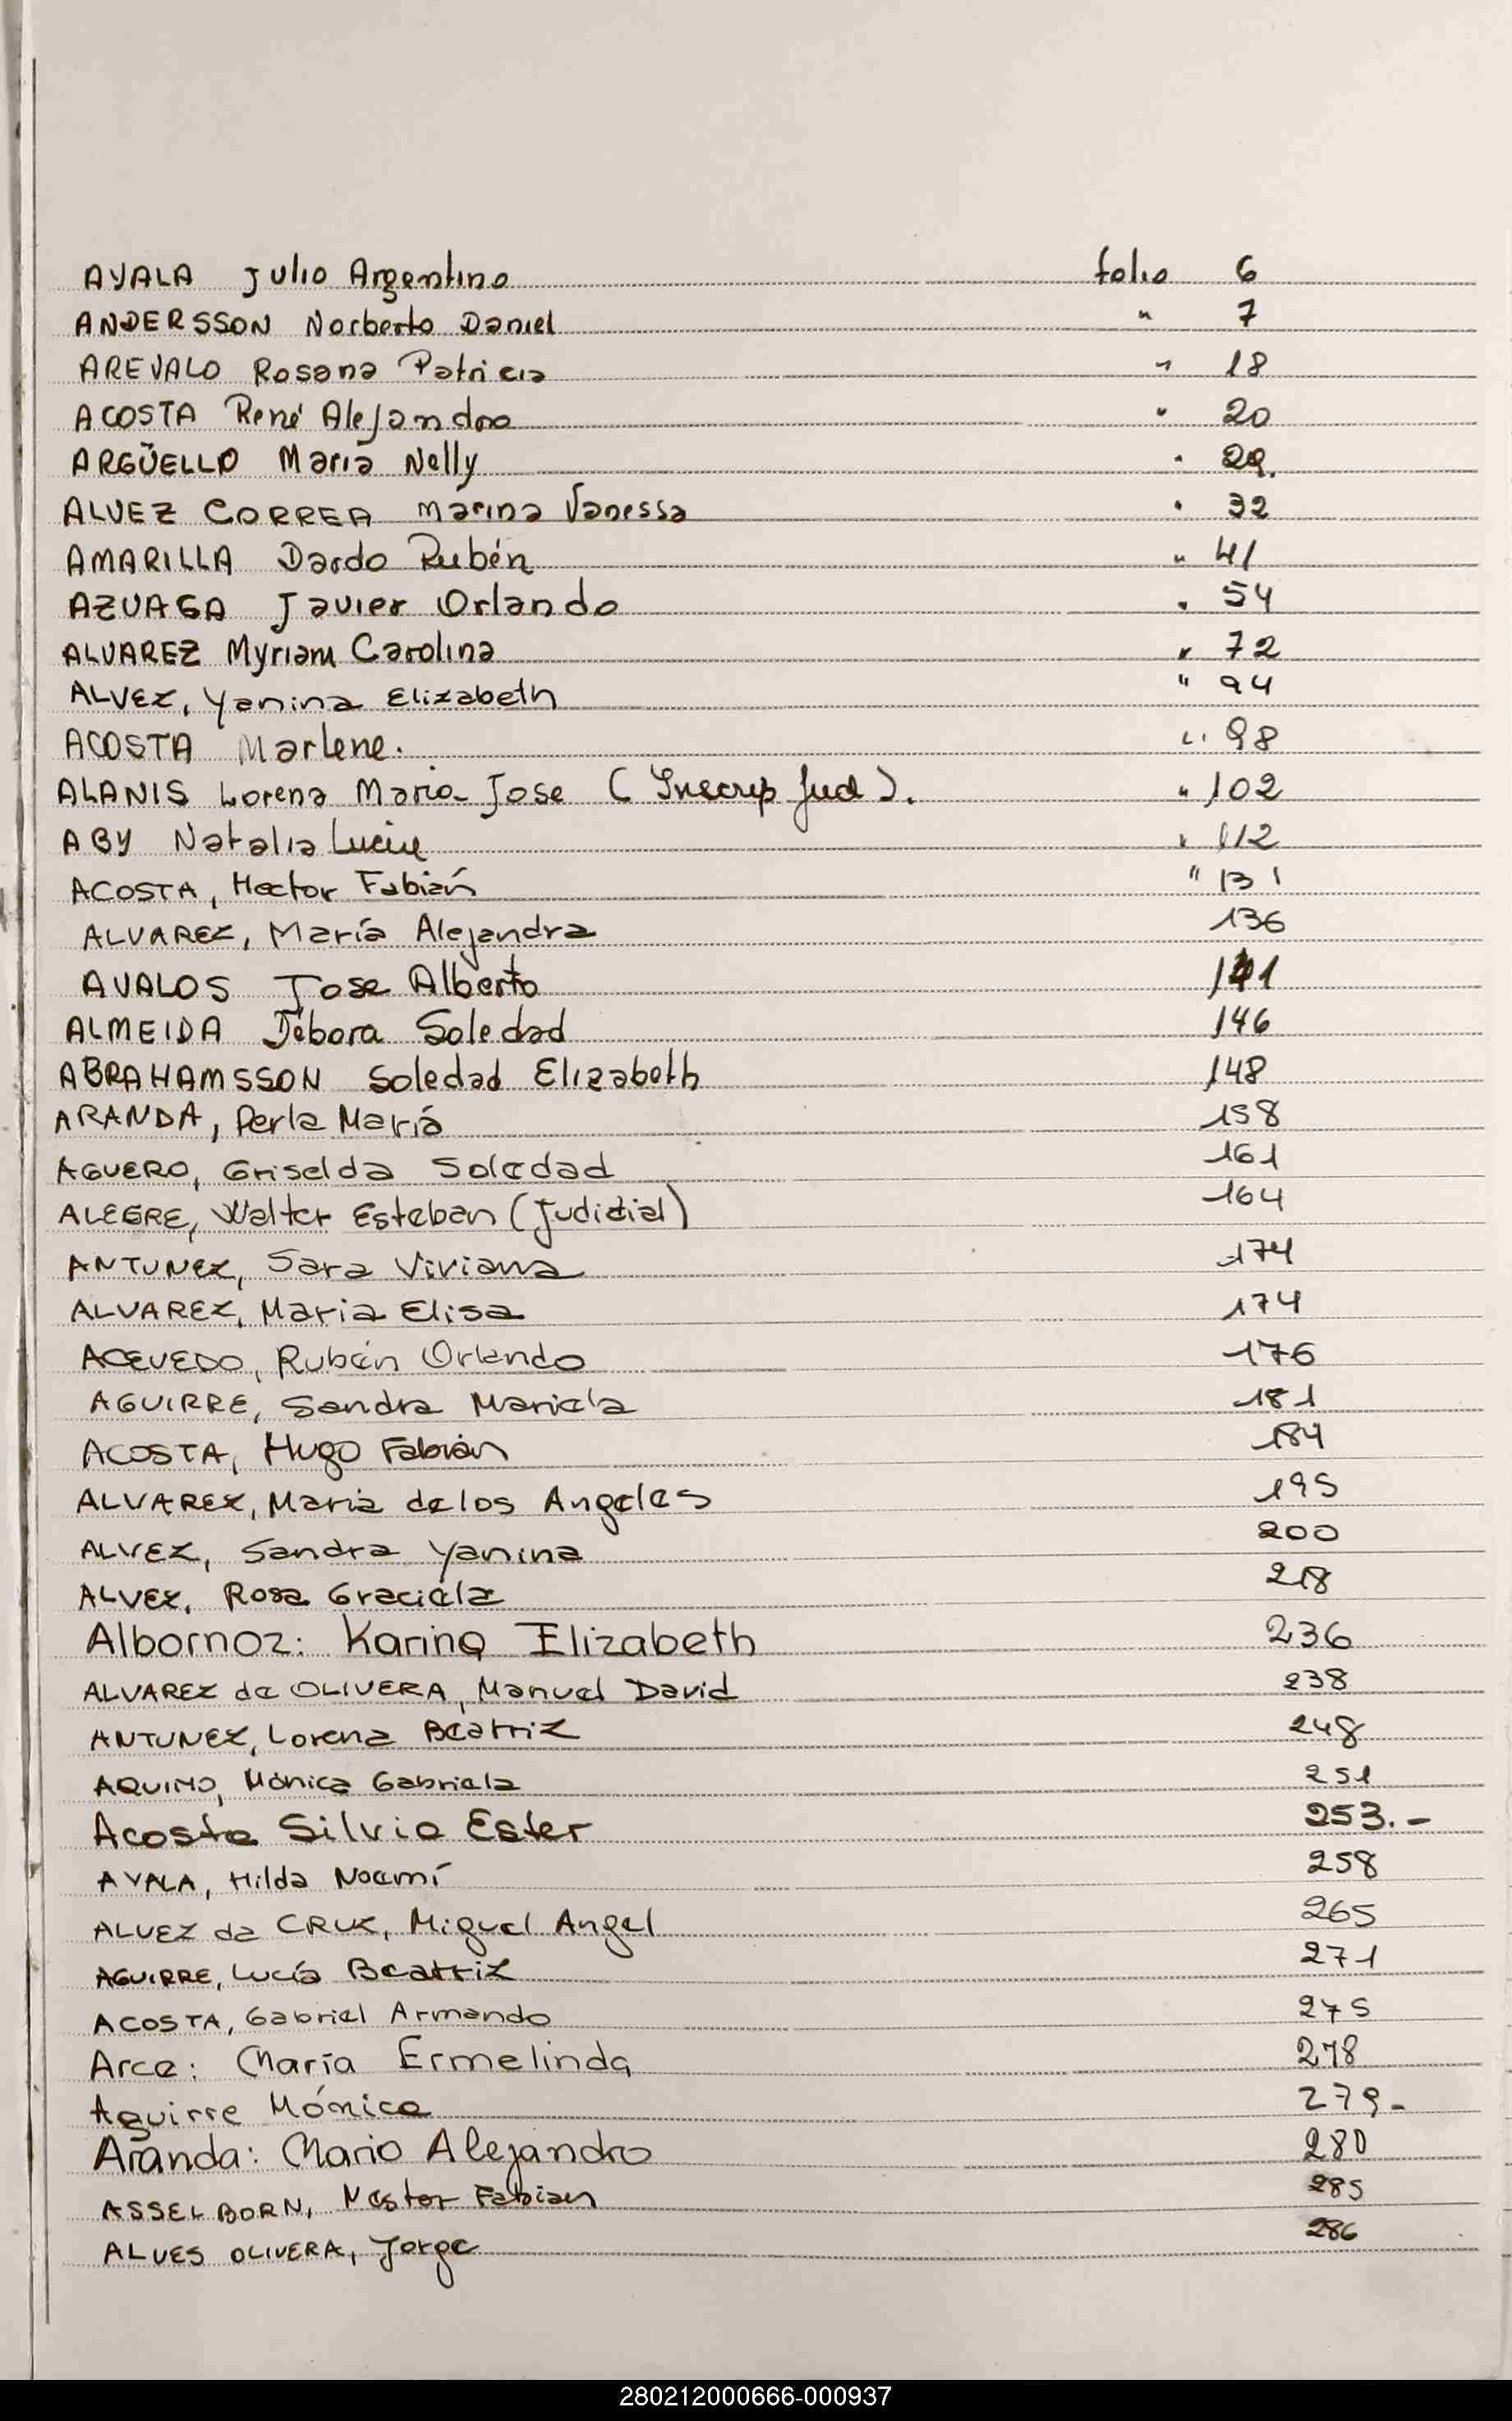 AYALA Julio Argentino folio 6
ANDERSSON Norberto Daniel " 7
AREVALO Rosana Patricia " 18
ACOSTA René Alejandro " 20
ARGÜELLO María Nelly " 29.
ALVEZ CORREA Marina Vanessa " 32
AMARILLA Dardo Rubén " 41
AZUAGA Javier Orlando " 54
ALVAREZ Myriam Carolina " 72
ALVEZ, Yanina Elizabeth " 94
ACOSTA Marlene. " 98
ALANIS Lorena Maria Jose (Inscrip Jud). " 102
ABY Natalia Lucia " 112
ACOSTA, Hector Fabián " 131
ALVAREZ, María Alejandra 136
AVALOS Jose Alberto 141
ALMEIDA Débora Soledad 146
ABRAHAMSSON Soledad Elizabeth 148
ARANDA, Perla María 158
AGUERO, Griselda Soledad 161
ALEGRE, Walter Esteban (Judicial) 164
ANTUNEZ, Sara Viviana 174
ALVAREZ, Maria Elisa 174
ACEVEDO, Rubén Orlando 176
AGUIRRE, Sandra Mariela 181
ACOSTA, Hugo Fabián 184
ALVAREZ, Maria de los Angeles 195
ALVEZ, Sandra Yanina 200
ALVEZ, Rosa Graciela 218
Albornoz: Karina Elizabeth 236
ALVAREZ de OLIVERA, Manuel David 238
ANTUNEZ, Lorena Beatriz 248
AQUINO, Mónica Gabriela 251
Acosta Silvia Ester 253.-
AYALA, Hilda Noemí 258
ALVEZ da CRUZ, Miguel Angel 265
AGUIRRE, Lucía Beatriz 271
ACOSTA, Gabriel Armando 275
Arce: María Ermelinda 278
Aguirre Mónica 279-
Aranda: Mario Alejandro 280
ASSELBORN, Nestor Fabian 285
ALVES OLIVERA, Jorge 286
280212000666-000937